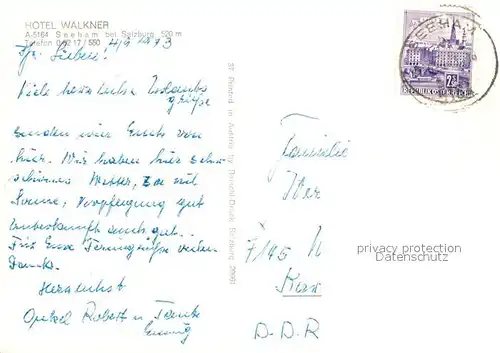 HOTEL WALKNER
A-5164 Seeham bei Salzburg 520 m
Telefon 0 62 17 / 550
Ihr Lieben!
Viele herzliche Urlaubs
grüße
senden wir Euch von
hier. Wir haben hier sehr
schönes Wetter, viel
Sonne, Verpflegung gut
Unterkunft auch gut.
Für Eure Feriengrüße vielen
Dank.
Herzlichst
Onkel Robert u Tante
37 Printed in Austria by Theischl-Druck, Salzburg
SEEHAM
REPUBLIK ÖSTERREICH
Familie
7145
D.D.R
privacy protection
Datenschutz